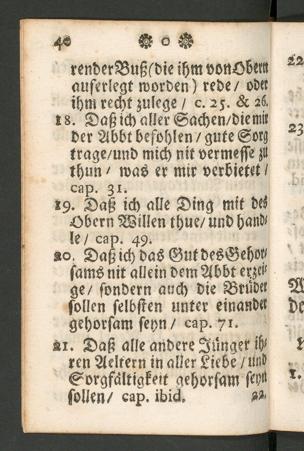 40
render Buß (die ihm von Obern
auferlegt worden) rede / oder
ihm recht zulege / c. 25. & 26.
18. Daß ich aller Sachen / die mir
der Abbt befohlen / gute Sorg
trage / und mich nit vermesse zu
thun / was er mir verbietet /
cap. 31.
19. Daß ich alle Ding mit des
Obern Willen thue / und hand-
le / cap. 49.
20. Daß ich das Gut des Gehor-
sams nit allein dem Abbt erzei-
ge / sondern auch die Brüder
sollen selbsten unter einander
gehorsam seyn / cap. 71.
21. Daß alle andere Jünger ih-
ren Aeltern in aller Liebe / und
Sorgfältigkeit gehorsam seyn
sollen / cap. ibid.
22.
22
23
1.